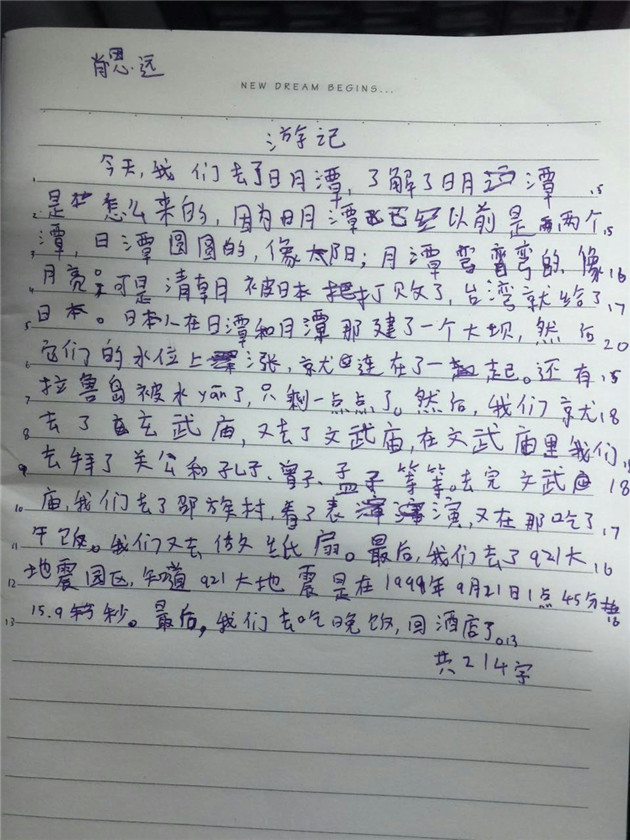 肖思远
NEW DREAM BEGINS...
游记
今天,我们去了日月潭,了解了日月潭 15
1
是怎么来的,因为日月潭以前是两个 15
2
潭,日潭圆圆的,像太阳;月潭弯弯的,像 16
3
月亮。可是清朝被日本打败了,台湾就给了 17
4
日本。日本人在日潭和月潭那建了一个大坝,然后 20
5
它们的水位上涨,就连在了一起。还有 15
6
拉鲁岛被水yān了,只剩一点点了。然后,我们就 18
7
去了玄武庙,又去了文武庙,在文武庙里我们
8
去拜了关公和孔子、曾子、孟子等等。去完文武 18
9
庙,我们去了邵族村,看了表演,又在那吃了 17
10
午饭。我们又去做纸扇。最后,我们去了921大 16
11
地震园区,知道921大地震是在1999年9月21日1点45分 16
12
15.9秒。最后,我们去吃晚饭,回酒店了。 13
13
共214字